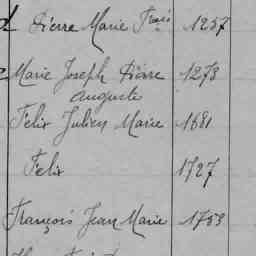 Pierre Marie Frçois 1257
Marie Joseph Pierre 1273
Auguste
Felix Julien Marie 1681
Felix 1727
François Jean Marie 1753